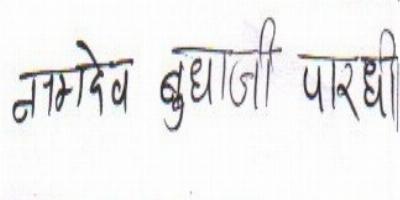 नामदेव बुधाजी पारधी